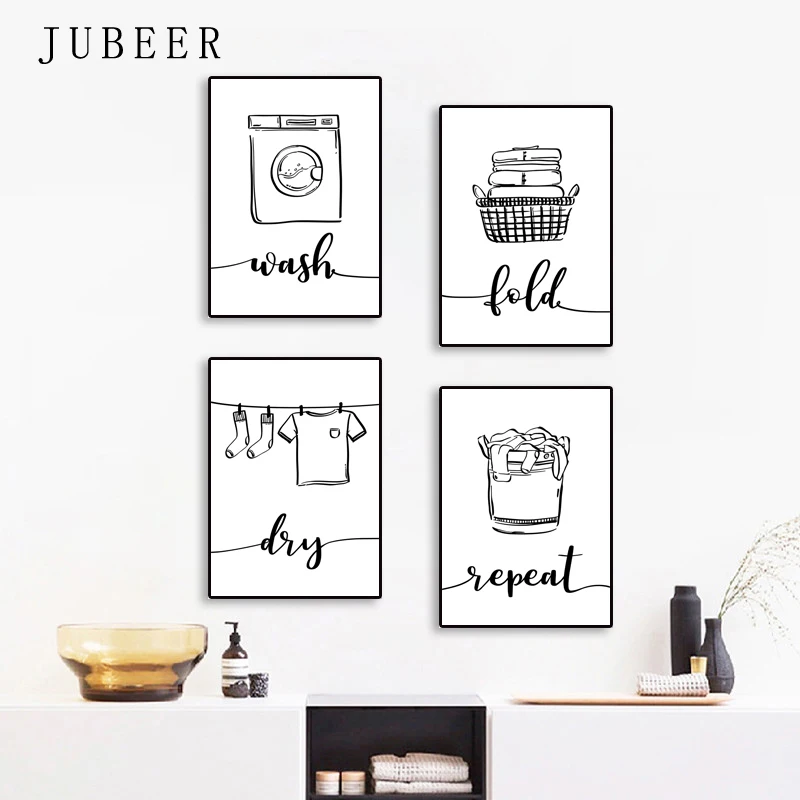 JUBEER
wash
fold
dry
repeat